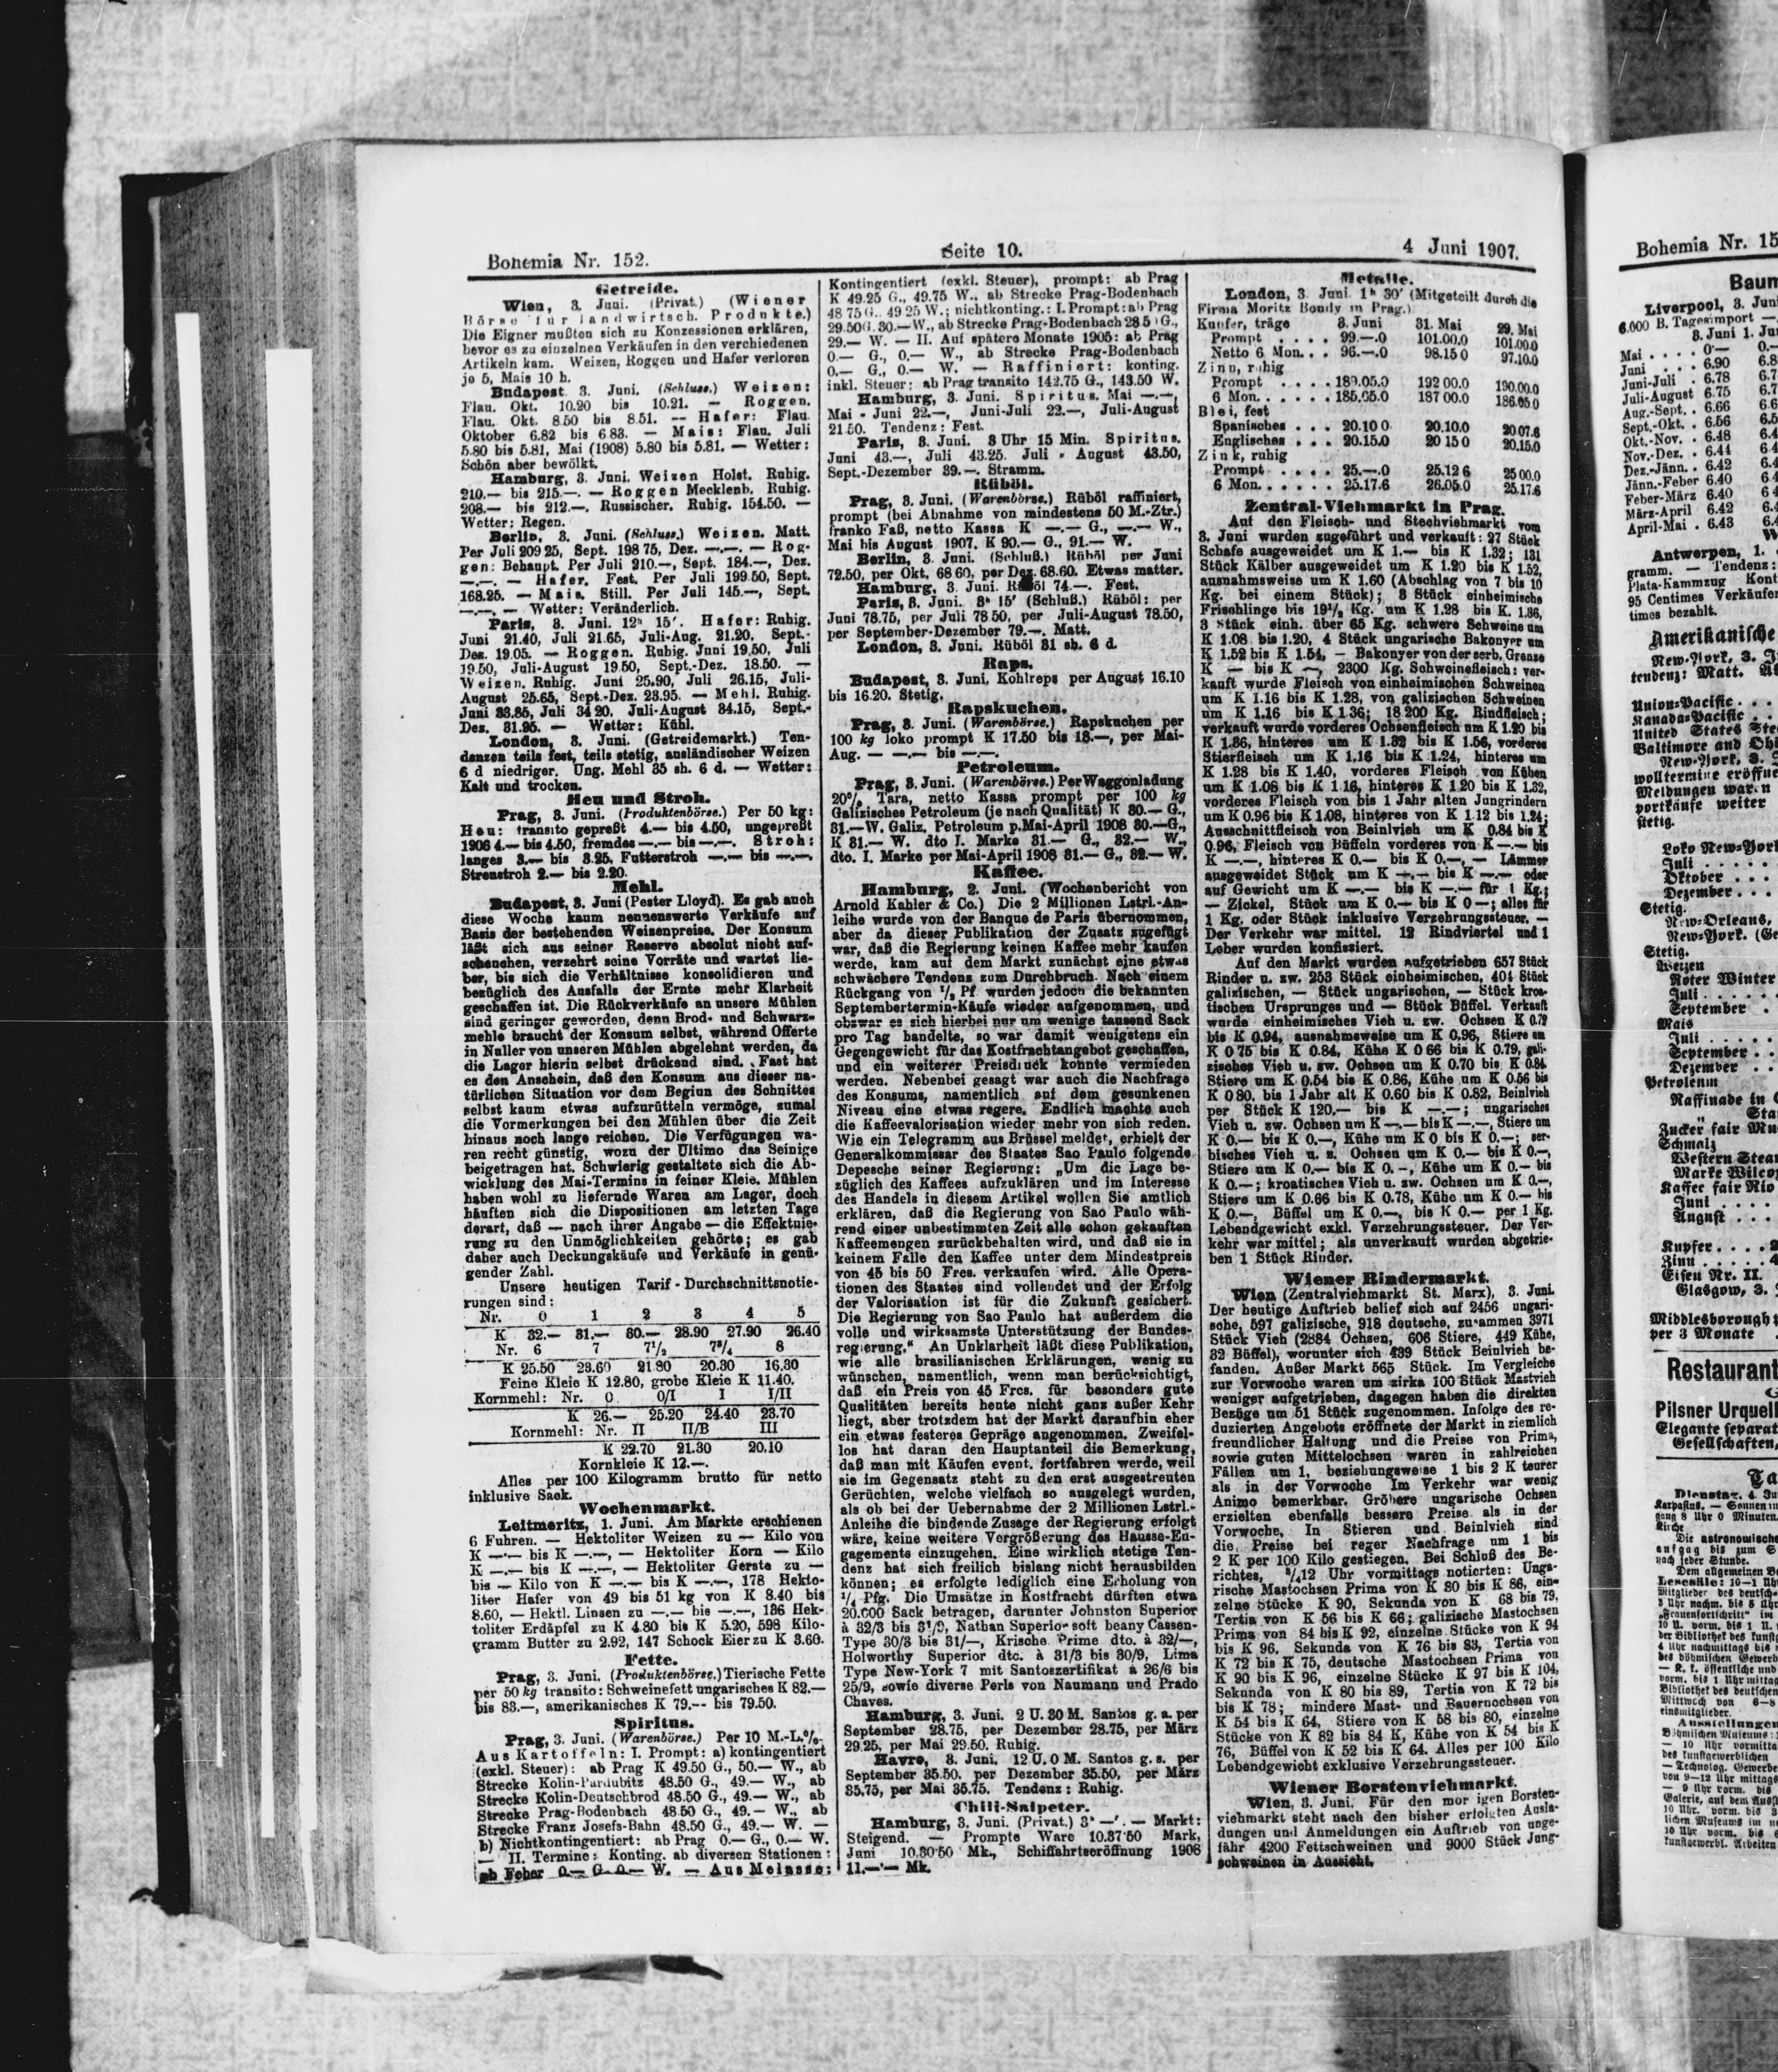 Bohemia Nr. 152.
Seite 10.
4 Juni 1907.
Getreide.
Wien, 3. Juni. (Privat.) (Wiener
Börse für landwirtsch. Produkte.)
Die Eigner mußten sich zu Konzessionen erklären,
bevor es zu einzelnen Verkäufen in den verschiedenen
Artikeln kam. Weizen, Roggen und Hafer verloren
je 5, Mais 10 h.
Budapest 3. Juni. (Schluss.) Weizen:
Flau. Okt. 10.20 bis 10.21. — Roggen.
Flau. Okt. 8.50 bis 8.51. — Hafer: Flau.
Oktober 6.82 bis 6.83. — Mais: Flau. Juli
5.80 bis 5.81, Mai (1908) 5.80 bis 5.81. — Wetter:
Schön aber bewölkt.
Hamburg, 3. Juni. Weizen Holst. Ruhig.
210.— bis 215.—. — Roggen Mecklenb. Ruhig.
208.— bis 212.—. Russischer. Ruhig. 154.50. —
Wetter: Regen.
Berlin, 3. Juni. (Schluss.) Weizen. Matt.
Per Juli 209 25, Sept. 198 75, Dez. —.—. — Rog-
gen: Behaupt. Per Juli 210.—, Sept. 184.—, Dez.
—.—. — Hafer. Fest. Per Juli 199.50, Sept.
168.25. — Mais. Still. Per Juli 145.—, Sept.
—.—. — Wetter: Veränderlich.
Paris, 3. Juni. 12h 15'. Hafer: Ruhig.
Juni 21.40, Juli 21.65, Juli-Aug. 21.20, Sept.-
Dez. 19.05. — Roggen. Ruhig. Juni 19.50, Juli
19.50, Juli-August 19.50, Sept.-Dez. 18.50. —
Weizen. Ruhig. Juni 25.90, Juli 26.15, Juli-
August 25.65, Sept.-Dez. 23.95. — Mehl. Ruhig.
Juni 33.85, Juli 34 20, Juli-August 34.15, Sept.-
Dez. 31.95. — Wetter: Kühl.
London, 3. Juni. (Getreidemarkt.) Ten-
denzen teils fest, teils stetig, ausländischer Weizen
6 d niedriger. Ung. Mehl 35 sh. 6 d. — Wetter:
Kalt und trocken.
Heu und Stroh.
Prag, 3. Juni. (Produktenbörse.) Per 50 kg:
Heu: transito gepreßt 4.— bis 4.50, ungepreßt
1906 4.— bis 4.50, fremdes —.— bis —.—. Stroh:
langes 3.— bis 3.25, Futterstroh —.— bis —.—.
Streustroh 2.— bis 2.20.
Mehl.
Budapest, 3. Juni (Pester Lloyd). Es gab auch
diese Woche kaum nennenswerte Verkäufe auf
Basis der bestehenden Weizenpreise. Der Konsum
läßt sich aus seiner Reserve absolut nicht auf-
scheuchen, verzehrt seine Vorräte und wartet lie-
ber, bis sich die Verhältnisse konsolidieren und
bezüglich des Ausfalls der Ernte mehr Klarheit
geschaffen ist. Die Rückverkäufe an unsere Mühlen
sind geringer geworden, denn Brod- und Schwarz-
mehle braucht der Konsum selbst, während Offerte
in Nuller von unseren Mühlen abgelehnt werden, da
die Lager hierin selbst drückend sind. Fast hat
es den Anschein, daß den Konsum aus dieser na-
türlichen Situation vor dem Beginn des Schnittes
selbst kaum etwas aufzurütteln vermöge, zumal
die Vormerkungen bei den Mühlen über die Zeit
hinaus noch lange reichen. Die Verfügungen wa-
ren recht günstig, wozu der Ultimo das Seinige
beigetragen hat. Schwierig gestaltete sich die Ab-
wicklung des Mai-Termins in feiner Kleie. Mühlen
haben wohl zu liefernde Waren am Lager, doch
häuften sich die Dispositionen am letzten Tage
derart, daß — nach ihrer Angabe — die Effektuie-
rung zu den Unmöglichkeiten gehörte; es gab
daher auch Deckungskäufe und Verkäufe in genü-
gender Zahl.
Unsere heutigen Tarif-Durchschnittsnotie-
rungen sind:
Nr. 0 1 2 3 4 5
K 32.— 31.— 30.— 28.90 27.90 26.40
Nr. 6 7 7 1/2 7 3/4 8
K 25.50 23.60 21.80 20.30 16.30
Feine Kleie K 12.80, grobe Kleie K 11.40.
Kornmehl: Nr. 0 0/I I I/II
K 26.— 25.20 24.40 23.70
Kornmehl: Nr. II II/B III
K 22.70 21.30 20.10
Kornkleie K 12.—.
Alles per 100 Kilogramm brutto für netto
inklusive Sack.
Wochenmarkt.
Leitmeritz, 1. Juni. Am Markte erschienen
6 Fuhren. — Hektoliter Weizen zu — Kilo von
K —.— bis K —.—, — Hektoliter Korn — Kilo
K —.— bis K —.—, — Hektoliter Gerste zu —
bis — Kilo von K —.— bis K —.—, 178 Hekto-
liter Hafer von 49 bis 51 kg von K 8.40 bis
8.60, — Hektl. Linsen zu —.— bis —.—, 136 Hek-
toliter Erdäpfel zu K 4.80 bis K 5.20, 598 Kilo-
gramm Butter zu 2.92, 147 Schock Eier zu K 3.60.
Fette.
Prag, 3. Juni. (Produktenbörse.) Tierische Fette
per 50 kg transito: Schweinefett ungarisches K 82.—
bis 83.—, amerikanisches K 79.-- bis 79.50.
Spiritus.
Prag, 3. Juni. (Warenbörse.) Per 10 M.-L.%.
Aus Kartoffeln: I. Prompt: a) kontingentiert
(exkl. Steuer): ab Prag K 49.50 G., 50.— W., ab
Strecke Kolin-Pardubitz 48.50 G., 49.— W., ab
Strecke Kolin-Deutschbrod 48.50 G., 49.— W., ab
Strecke Prag-Bodenbach 48.50 G., 49.— W., ab
Strecke Franz Josefs-Bahn 48.50 G., 49.— W. —
b) Nichtkontingentiert: ab Prag 0.— G., 0.— W.
— II. Termine: Konting. ab diversen Stationen:
ab Feber 0.— G. 0.— W. — Aus Melasse:
Kontingentiert (exkl. Steuer), prompt: ab Prag
K 49.25 G., 49.75 W., ab Strecke Prag-Bodenbach
48 75 G., 49 25 W.; nichtkonting.: I. Prompt: ab Prag
29.50 G. 30.— W., ab Strecke Prag-Bodenbach G.,
29.— W. — II. Auf spätere Monate 1905: ab Prag
0.— G., 0.— W., ab Strecke Prag-Bodenbach
0.— G., 0.— W. — Raffiniert: konting.
inkl. Steuer: ab Prag transito 142.75 G., 143.50 W.
Hamburg, 3. Juni. Spiritus. Mai —.—,
Mai - Juni 22.—, Juni-Juli 22.—, Juli-August
21 50. Tendenz: Fest.
Paris, 3. Juni. 3 Uhr 15 Min. Spiritus.
Juni 43.—, Juli 43.25. Juli - August 43.50,
Sept.-Dezember 39.—. Stramm.
Rüböl.
Prag, 3. Juni. (Warenbörse.) Rüböl raffiniert,
prompt (bei Abnahme von mindestens 50 M.-Ztr.)
franko Faß, netto Kassa K —.— G., —.— W.,
Mai bis August 1907. K 90.— G., 91.— W.
Berlin, 3. Juni. (Schluß.) Rüböl per Juni
72.50, per Okt. 68 60, per Dez. 68.60. Etwas matter.
Hamburg, 3. Juni. Rüböl 74.—. Fest.
Paris, 3. Juni. 3h 15' (Schluß.) Rüböl: per
Juni 78.75, per Juli 78 50, per Juli-August 78.50,
per September-Dezember 79.—. Matt.
London, 3. Juni. Rüböl 31 sh. 6 d.
Raps.
Budapest, 3. Juni. Kohlreps per August 16.10
bis 16.20. Stetig.
Rapskuchen.
Prag, 3. Juni. (Warenbörse.) Rapskuchen per
100 kg loko prompt K 17.50 bis 18.—, per Mai-
Aug. — —.— bis —.—.
Petroleum.
Prag, 3. Juni. (Warenbörse.) Per Waggonladung
20% Tara, netto Kassa prompt per 100 kg
Galizisches Petroleum (je nach Qualität) K 30.— G.,
31.— W. Galiz. Petroleum p. Mai-April 1908 30.— G.,
K 31.— W. dto I. Marke 31.— G., 32.— W.,
dto. I. Marke per Mai-April 1908 31.— G., 32.— W.
Kaffee.
Hamburg, 2. Juni. (Wochenbericht von
Arnold Kahler & Co.) Die 2 Millionen Lstrl.-An-
leihe wurde von der Banque de Paris übernommen,
aber da dieser Publikation der Zusatz zugefügt
war, daß die Regierung keinen Kaffee mehr kaufen
werde, kam auf dem Markt zunächst eine etwas
schwächere Tendenz zum Durchbruch. Nach einem
Rückgang von 1/2 Pf wurden jedoch die bekannten
Septembertermin-Käufe wieder aufgenommen, und
obzwar es sich hierbei nur um wenige tausend Sack
pro Tag handelte, so war damit wenigstens ein
Gegengewicht für das Kostfrachtangebot geschaffen,
und ein weiterer Preisdruck konnte vermieden
werden. Nebenbei gesagt war auch die Nachfrage
des Konsums, namentlich auf dem gesunkenen
Niveau eine etwas regere. Endlich machte auch
die Kaffeevalorisation wieder mehr von sich reden.
Wie ein Telegramm aus Brüssel meldet, erhielt der
Generalkommissar des Staates Sao Paulo folgende
Depesche seiner Regierung: „Um die Lage be-
züglich des Kaffees aufzuklären und im Interesse
des Handels in diesem Artikel wollen Sie amtlich
erklären, daß die Regierung von Sao Paulo wäh-
rend einer unbestimmten Zeit alle schon gekauften
Kaffeemengen zurückbehalten wird, und daß sie in
keinem Falle den Kaffee unter dem Mindestpreis
von 45 bis 50 Frcs. verkaufen wird. Alle Opera-
tionen des Staates sind vollendet und der Erfolg
der Valorisation ist für die Zukunft gesichert.
Die Regierung von Sao Paulo hat außerdem die
volle und wirksamste Unterstützung der Bundes-
regierung.“ An Unklarheit läßt diese Publikation,
wie alle brasilianischen Erklärungen, wenig zu
wünschen, namentlich, wenn man berücksichtigt,
daß ein Preis von 45 Frcs. für besonders gute
Qualitäten bereits heute nicht ganz außer Kehr
liegt, aber trotzdem hat der Markt daraufhin eher
ein etwas festeres Gepräge angenommen. Zweifel-
los hat daran den Hauptanteil die Bemerkung,
daß man mit Käufen event. fortfahren werde, weil
sie im Gegensatz steht zu den erst ausgestreuten
Gerüchten, welche vielfach so ausgelegt wurden,
als ob bei der Uebernahme der 2 Millionen Lstrl.-
Anleihe die bindende Zusage der Regierung erfolgt
wäre, keine weitere Vergrößerung des Hausse-En-
gagements einzugehen. Eine wirklich stetige Ten-
denz hat sich freilich bislang nicht herausbilden
können; es erfolgte lediglich eine Erholung von
1/4 Pfg. Die Umsätze in Kostfracht dürften etwa
20.000 Sack betragen, darunter Johnston Superior
à 32/3 bis Nathan Superior soft beany Cassen-
Type 30/3 bis 31/—, Krische Prime dto. à 32/—,
Holworthy Superior dtc. à 31/3 bis 30/9, Lima
Type New-York 7 mit Santoszertifikat à 26/6 bis
25/9, sowie diverse Perls von Naumann und Prado
Chaves.
Hamburg, 3. Juni. 2 U. 30 M. Santos g. a. per
September 28.75, per Dezember 28.75, per März
29.25, per Mai 29.50. Ruhig.
Havre, 3. Juni. 12 U. 0 M. Santos g. s. per
September 35.50, per Dezember 35.50, per März
35.75, per Mai 35.75. Tendenz: Ruhig.
Chili-Salpeter.
Hamburg, 3. Juni. (Privat.) 3h —'. — Markt:
Steigend. — Prompte Ware 10.37·50 Mark,
Juni 10.30·50 Mk., Schiffahrtseröffnung 1908
11.—'— Mk.
Metalle.
London, 3. Juni. 1h 30' (Mitgeteilt durch die
Firma Moritz Bondy in Prag.)
Kupfer, träge 3. Juni 31. Mai 29. Mai
Prompt . . . . 99.—.0 101.00.0 101.00.0
Netto 6 Mon. . . 96.—.0 98.15 0 97.10.0
Zinn, ruhig
Prompt . . . . 189.05.0 192 00.0 190.00.0
6 Mon. . . . . . 185.05.0 187 00.0 186.05 0
Blei, fest
Spanisches . . . 20.10 0 20.10.0 20 07.6
Englisches . . . 20.15.0 20 15 0 20.15.0
Zink, ruhig
Prompt . . . . 25.—.0 25.12 6 25 00.0
6 Mon. . . . . . 25.17.6 26.05.0 25.17.6
Zentral-Viehmarkt in Prag.
Auf den Fleisch- und Stechviehmarkt vom
3. Juni wurden zugeführt und verkauft: 27 Stück
Schafe ausgeweidet um K 1.— bis K 1.32; 131
Stück Kälber ausgeweidet um K 1.20 bis K 1.52,
ausnahmsweise um K 1.60 (Abschlag von 7 bis 10
Kg. bei einem Stück); 8 Stück einheimische
Frischlinge bis 19 1/2 Kg. um K 1.28 bis K. 1.36,
3 Stück einh. über 65 Kg. schwere Schweine um
K 1.08 bis 1.20, 4 Stück ungarische Bakonyer um
K 1.52 bis K 1.54, — Bakonyer von der serb. Grenze
K — bis K —, 2300 Kg. Schweinefleisch: ver-
kauft wurde Fleisch von einheimischen Schweinen
um K 1.16 bis K 1.28, von galizischen Schweinen
um K 1.16 bis K 1.36; 18 200 Kg. Rindfleisch;
verkauft wurde vorderes Ochsenfleisch um K 1.20 bis
K 1.36, hinteres um K 1.32 bis K 1.56, vorderes
Stierfleisch um K 1.16 bis K 1.24, hinteres um
K 1.28 bis K 1.40, vorderes Fleisch von Kühen
um K 1.08 bis K 1.16, hinteres K 1.20 bis K 1.32,
vorderes Fleisch von bis 1 Jahr alten Jungrindern
um K 0.96 bis K 1.08, hinteres von K 1.12 bis 1.24;
Ausschnittfleisch von Beinlvieh um K 0.84 bis K
0.96, Fleisch von Büffeln vorderes von K —.— bis
K —.—, hinteres K 0.— bis K 0.—, — Lämmer
ausgeweidet Stück um K —.— bis K —.— oder
auf Gewicht um K —.— bis K —.— für 1 Kg.;
— Zickel, Stück um K 0.— bis K 0—; alles für
1 Kg. oder Stück inklusive Verzehrungssteuer. —
Der Verkehr war mittel. 12 Rindviertel und 1
Leber wurden konfisziert.
Auf den Markt wurden aufgetrieben 657 Stück
Rinder u. zw. 253 Stück einheimischen, 404 Stück
galizischen, — Stück ungarischen, — Stück kroa-
tischen Ursprunges und — Stück Büffel. Verkauft
wurde einheimisches Vieh u. zw. Ochsen K 0.79
bis K 0.94, ausnahmsweise um K 0.96, Stiere um
K 0 75 bis K 0.84, Kühe K 0 66 bis K 0.79, gali-
zisches Vieh u. zw. Ochsen um K 0.70 bis K 0.84
Stiere um K 0.54 bis K 0.86, Kühe um K 0.56 bis
K 0 80, bis 1 Jahr alt K 0.60 bis K 0.82, Beinlvieh
per Stück K 120.— bis K —.—; ungarisches
Vieh u. zw. Ochsen um K —.— bis K —.—, Stiere um
K 0.— bis K 0.—, Kühe um K 0 bis K 0.—; ser-
bisches Vieh u. z. Ochsen um K 0.— bis K 0.—,
Stiere um K 0.— bis K 0.-, Kühe um K 0.— bis
K 0.—; kroatisches Vieh u. zw. Ochsen um K 0.—,
Stiere um K 0.66 bis K 0.78, Kühe um K 0.— bis
K 0.—, Büffel um K 0.—, bis K 0.— per 1 Kg.
Lebendgewicht exkl. Verzehrungssteuer. Der Ver-
kehr war mittel; als unverkauft wurden abgetrie-
ben 1 Stück Rinder.
Wiener Rindermarkt.
Wien (Zentralviehmarkt St. Marx), 3. Juni.
Der heutige Auftrieb belief sich auf 2456 ungari-
sche, 597 galizische, 918 deutsche, zusammen 3971
Stück Vieh (2884 Ochsen, 606 Stiere, 449 Kühe,
32 Büffel), worunter sich 439 Stück Beinlvieh be-
fanden. Außer Markt 565 Stück. Im Vergleiche
zur Vorwoche waren um zirka 100 Stück Mastvieh
weniger aufgetrieben, dagegen haben die direkten
Bezüge um 51 Stück zugenommen. Infolge des re-
duzierten Angebots eröffnete der Markt in ziemlich
freundlicher Haltung und die Preise von Prima,
sowie guten Mittelochsen waren in zahlreichen
Fällen um 1, beziehungsweise 1 bis 2 K teurer
als in der Vorwoche Im Verkehr war wenig
Animo bemerkbar. Gröbere ungarische Ochsen
erzielten ebenfalls bessere Preise als in der
Vorwoche. In Stieren und Beinlvieh sind
die Preise bei reger Nachfrage um 1 bis
2 K per 100 Kilo gestiegen. Bei Schluß des Be-
richtes, 3/412 Uhr vormittags notierten: Unga-
rische Mastochsen Prima von K 80 bis K 86, ein-
zelne Stücke K 90, Sekunda von K 68 bis 79,
Tertia von K 56 bis K 66; galizische Mastochsen
Prima von 84 bis K 92, einzelne Stücke von K 94
bis K 96, Sekunda von K 76 bis 83, Tertia von
K 72 bis K 75, deutsche Mastochsen Prima von
K 90 bis K 96, einzelne Stücke K 97 bis K 104,
Sekunda von K 80 bis 89, Tertia von K 72 bis
bis K 78; mindere Mast- und Bauernochsen von
K 54 bis K 64, Stiere von K 58 bis 80, einzelne
Stücke von K 82 bis 84 K, Kühe von K 54 bis K
76, Büffel von K 52 bis K 64. Alles per 100 Kilo
Lebendgewicht exklusive Verzehrungssteuer.
Wiener Borstenviehmarkt.
Wien, 3. Juni. Für den morgigen Borsten-
viehmarkt steht nach den bisher erfolgten Ausla-
dungen und Anmeldungen ein Auftrieb von unge-
fähr 4200 Fettschweinen und 9000 Stück Jung-
schweinen in Aussicht.
Bohemia Nr. 15
Baum
Liverpool, 3. Juni
6.000 B. Tagesimport —
3. Juni 1. Jun
Mai . . . . 0— 0.—
Juni . . . . 6.90 6.8
Juni-Juli . 6.78 6.7
Juli-August 6.75 6.7
Aug.-Sept. . 6.66 6.6
Sept.-Okt. . 6.56 6.5
Okt.-Nov. . 6.48 6.4
Nov.-Dez. . 6.44 6.4
Dez.-Jänn. . 6.42 6.4
Jänn.-Feber 6.40 6.4
Feber-März 6.40 6.4
März-April 6.42 6.4
April-Mai . 6.43 6.4
W
Antwerpen, 1.
gramm. — Tendenz:
Plata-Kammzug Kont
95 Centimes Verkäufer
times bezahlt.
Amerikanische
New-York, 3. J
tendenz: Matt.
Union-Pacific . . .
Kanada-Pacific . .
United States Ste
Baltimore and Ohi
New-York, 3.
wolltermine eröffne
Meldungen waren
portkäufe weiter
stetig.
Loko New-York
Juli . . . . .
Oktober . . .
Dezember . . .
Stetig.
New-Orleans,
New-York. (Ge
Stetig.
Weizen
Roter Winter
Juli . . . . .
September .
Mais
Juli . . . . .
September . .
Dezember . .
Petroleum
Raffinade in
„ Sta
Zucker fair Mu
Schmalz
Western Stea
Marke Wilco
Kaffee fair Rio
Juni . . . .
August . . .
Kupfer . . . . 2
Zinn . . . . . 4
Eisen Nr. II.
Glasgow, 3.
Middlesborough
per 3 Monate .
Restaurant
Pilsner Urquell
Elegante separat
Gesellschaften,
Ta
Dienstag, 4. Ju